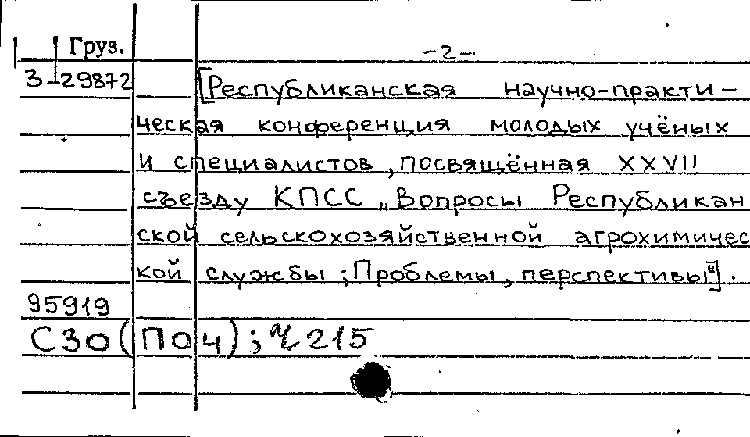 Груз.
-2-
3-29872 [Республиканская научно-практи-
ческая конференция молодых учёных
и специалистов, посвящённая XXVII
съезду КПСС „Вопросы Республикан
ской сельскохозяйственной агрохимичес
кой службы; Проблемы, перспективы"].
95919
СЗО(ПОЧ); Ч 215